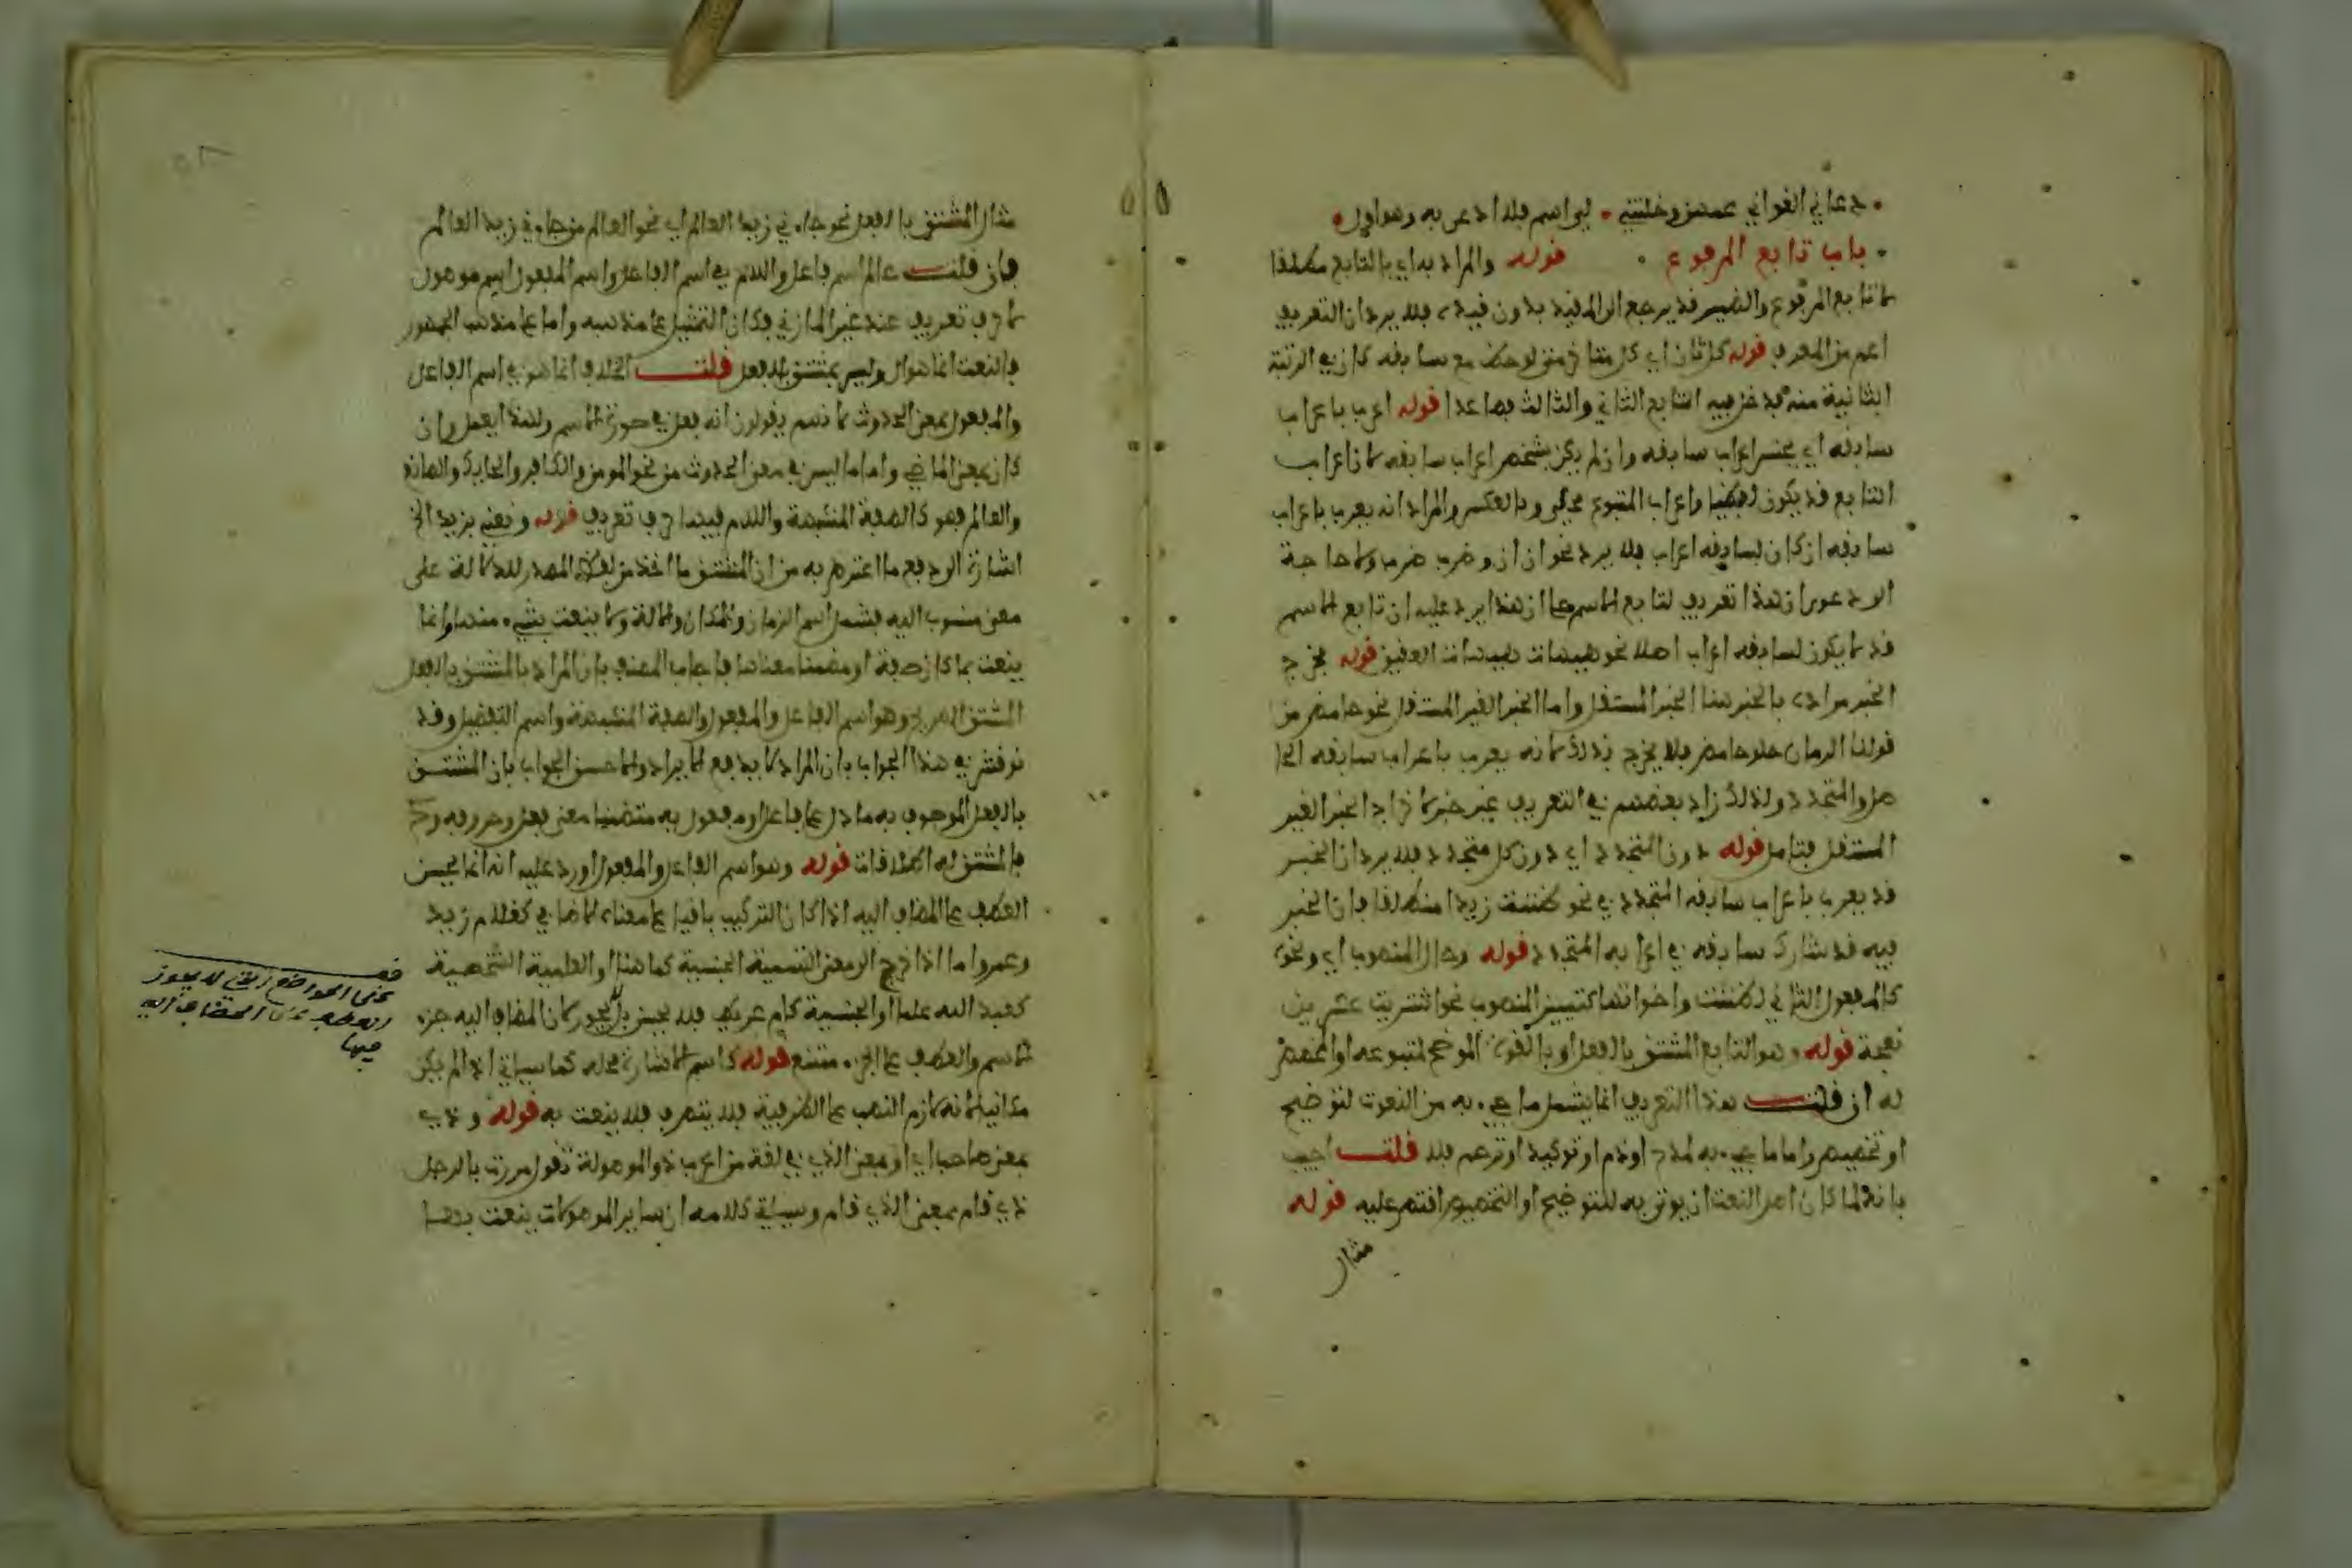 دعاني الغواني عمهن وخلتني لي اسم فلا ادعى به وهو اول
باب تابع المرفوع قوله والمراد به اي بالتابع مطلقا
لا تابع المرفوع والضمير قد يرجع الى المقيد بدون قيده فلا يرد ان التعريف
اعم من المعرف قوله كل ثان اي كل متاخر متى لوحظ مع سابقه كان في الرتبة
الثانية منه فدخل فيه التابع الثاني والثالث فصاعدا قوله اعرب باعراب
سابقه اي بجنس اعراب سابقه وان لم يكن بشخص اعراب سابقه لان اعراب
التابع قد يكون لفظيا واعراب المتبوع محلي وبالعكس والمراد انه يعرب باعراب
سابقه ان كان لسابقه اعراب فلا يرد نحو ان ان وضرب ضرب ولا حاجة
الى دعوى ان هذا تعريف لتابع الاسم على ان هذا يرد عليه ان تابع الاسم
قد لا يكون لسابقه اعراب اصلا نحو هيهات هيهات العقيق قوله مخرج
الخبر مراده بالخبر هنا الخبر المستقل واما الخبر الغير المستقل نحو حامض من
قولنا الرمان حلو حامض فلا يخرج بذلك لانه يعرب باعراب سابقه الحا
صل والمتجدد ولذلك زاد بعضهم في التعريف غير خبر لاخراج الخبر الغير
المستقل فتامل قوله دون المتجدد اي دون كل متجدد فلا يرد ان الخبر
قد يعرب باعراب سابقه المتجدد في نحو ظننت زيدا منطلقا فان الخبر
فيه قد شارك سابقه في اعرابه المتجدد قوله وحال المنصوب اي ونحوه
كالمفعول الثاني لظننت واخواتها كتمييز المنصوب نحو اشتريت عشرين
نعجة قوله وهو التابع المشتق بالفعل او بالقوة الموضح لمتبوعه او المخصص
له ان قلت هذا التعريف انما يشمل ما جيء به من النعوت لتوضيح
او تخصيص واما ما جيء به لمدح او ذم او توكيد او ترحم فلا قلت اجيب
بانه لما كان اصل النعت ان يوتى به للتوضيح او التخصيص اقتصر عليه قوله
مثال
مثال المشتق بالفعل نحو جاء ني زيد العالم اي نحو العالم من جاء ني زيد العالم
فان قلت عالم اسم فاعل واللام في اسم الفاعل واسم المفعول اسم موصول
لا حرف تعريف عند غير المازني فكان التمثيل على مذهبه واما على مذهب الجمهور
فالنعت انما هو ال وليس بمشتق بالفعل قلت الخلاف انما هو في اسم الفاعل
والمفعول بمعنى الحدوث لانهم يقولون انه فعل في صورة الاسم ولهذا يعمل وان
كان بمعنى الماضي واما ما ليس في معنى الحدوث من نحو المومن والكافر والحايك والصانع
والعالم فهو كالصفة المشبهة واللام فيها حرف تعريف قوله ونعني بزيد الخ
اشارة الى دفع ما اعترض به من ان المشتق ما اخذ من لفظ المصدر للدلالة على
معنى منسوب اليه فيشمل اسم الزمان والمكان والالة ولا ينعت بشيء منها وانما
ينعت بما كان صفة او مضمنا معناها فاجاب المصنف بان المراد بالمشتق بالفعل
المشتق الصريح وهو اسم الفاعل والمفعول والصفة المشبهة واسم التفضيل وقد
نوقش في هذا الجواب بان المراد لا يدفع الايراد والاحسن الجواب بان المشتق
بالفعل الموصوف به ما دل على فاعل او مفعول به متضمنا معنى فعل وحروفه
فالمشتق له اطلاقات قوله وهو اسم الفاعل والمفعول اورد عليه انه انما يحسن
العطف على المضاف اليه اذا كان التركيب باقيا على معناه الاضافي كغلام زيد
وعمرو اما اذا خرج الى معنى التسمية الجنسية كما هنا او العلمية الشخصية
كعبد الله علما او الجنسية كام عريط فلا يحسن بل لا يجوز لان المضاف اليه جزء
الاسم والعطف على الجزء ممتنع قوله كاسم الاشارة محله كما سياتي اذا لم يكن
مكانيا لانه لازم النصب على الظرفية فلا يتصرف فلا ينعت به قوله وذي
بمعنى صاحب اي او بمعنى الذي في لغة من اعرب ذو الموصولة تقول مررت بالرجل
ذي قام بمعنى الذي قام وسياتي كلامه ان ساير الموصولات ينعت بها
قف
على المواضع التي لا يجوز
العطف على المضاف اليه
فيها